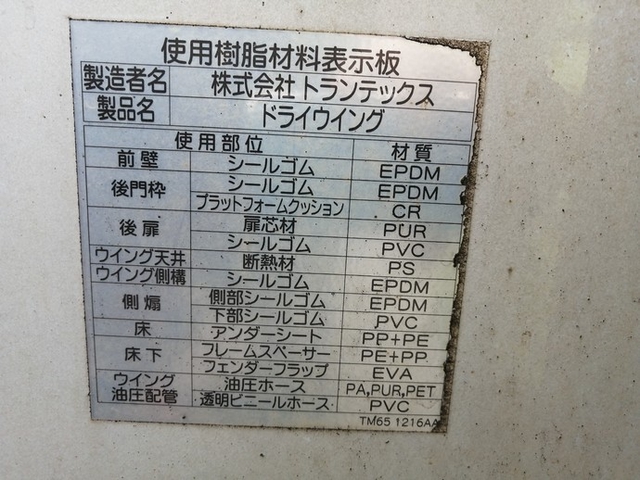 使用樹脂材料表示板
製造者名 株式会社 トランテックス
製品名 ドライウイング
使用部位 材質
前壁 シールゴム EPDM
後門枠 シールゴム EPDM
プラットフォームクッション CR
後扉 扉芯材 PUR
シールゴム PVC
ウイング天井 断熱材 PS
ウイング側構 シールゴム EPDM
側煽 側部シールゴム EPDM
下部シールゴム PVC
床 アンダーシート PP+PE
床下 フレームスペーサー PE+PP
フェンダーフラップ EVA
ウイング油圧配管 油圧ホース PA,PUR,PET
透明ビニールホース PVC
TM65 1216AA